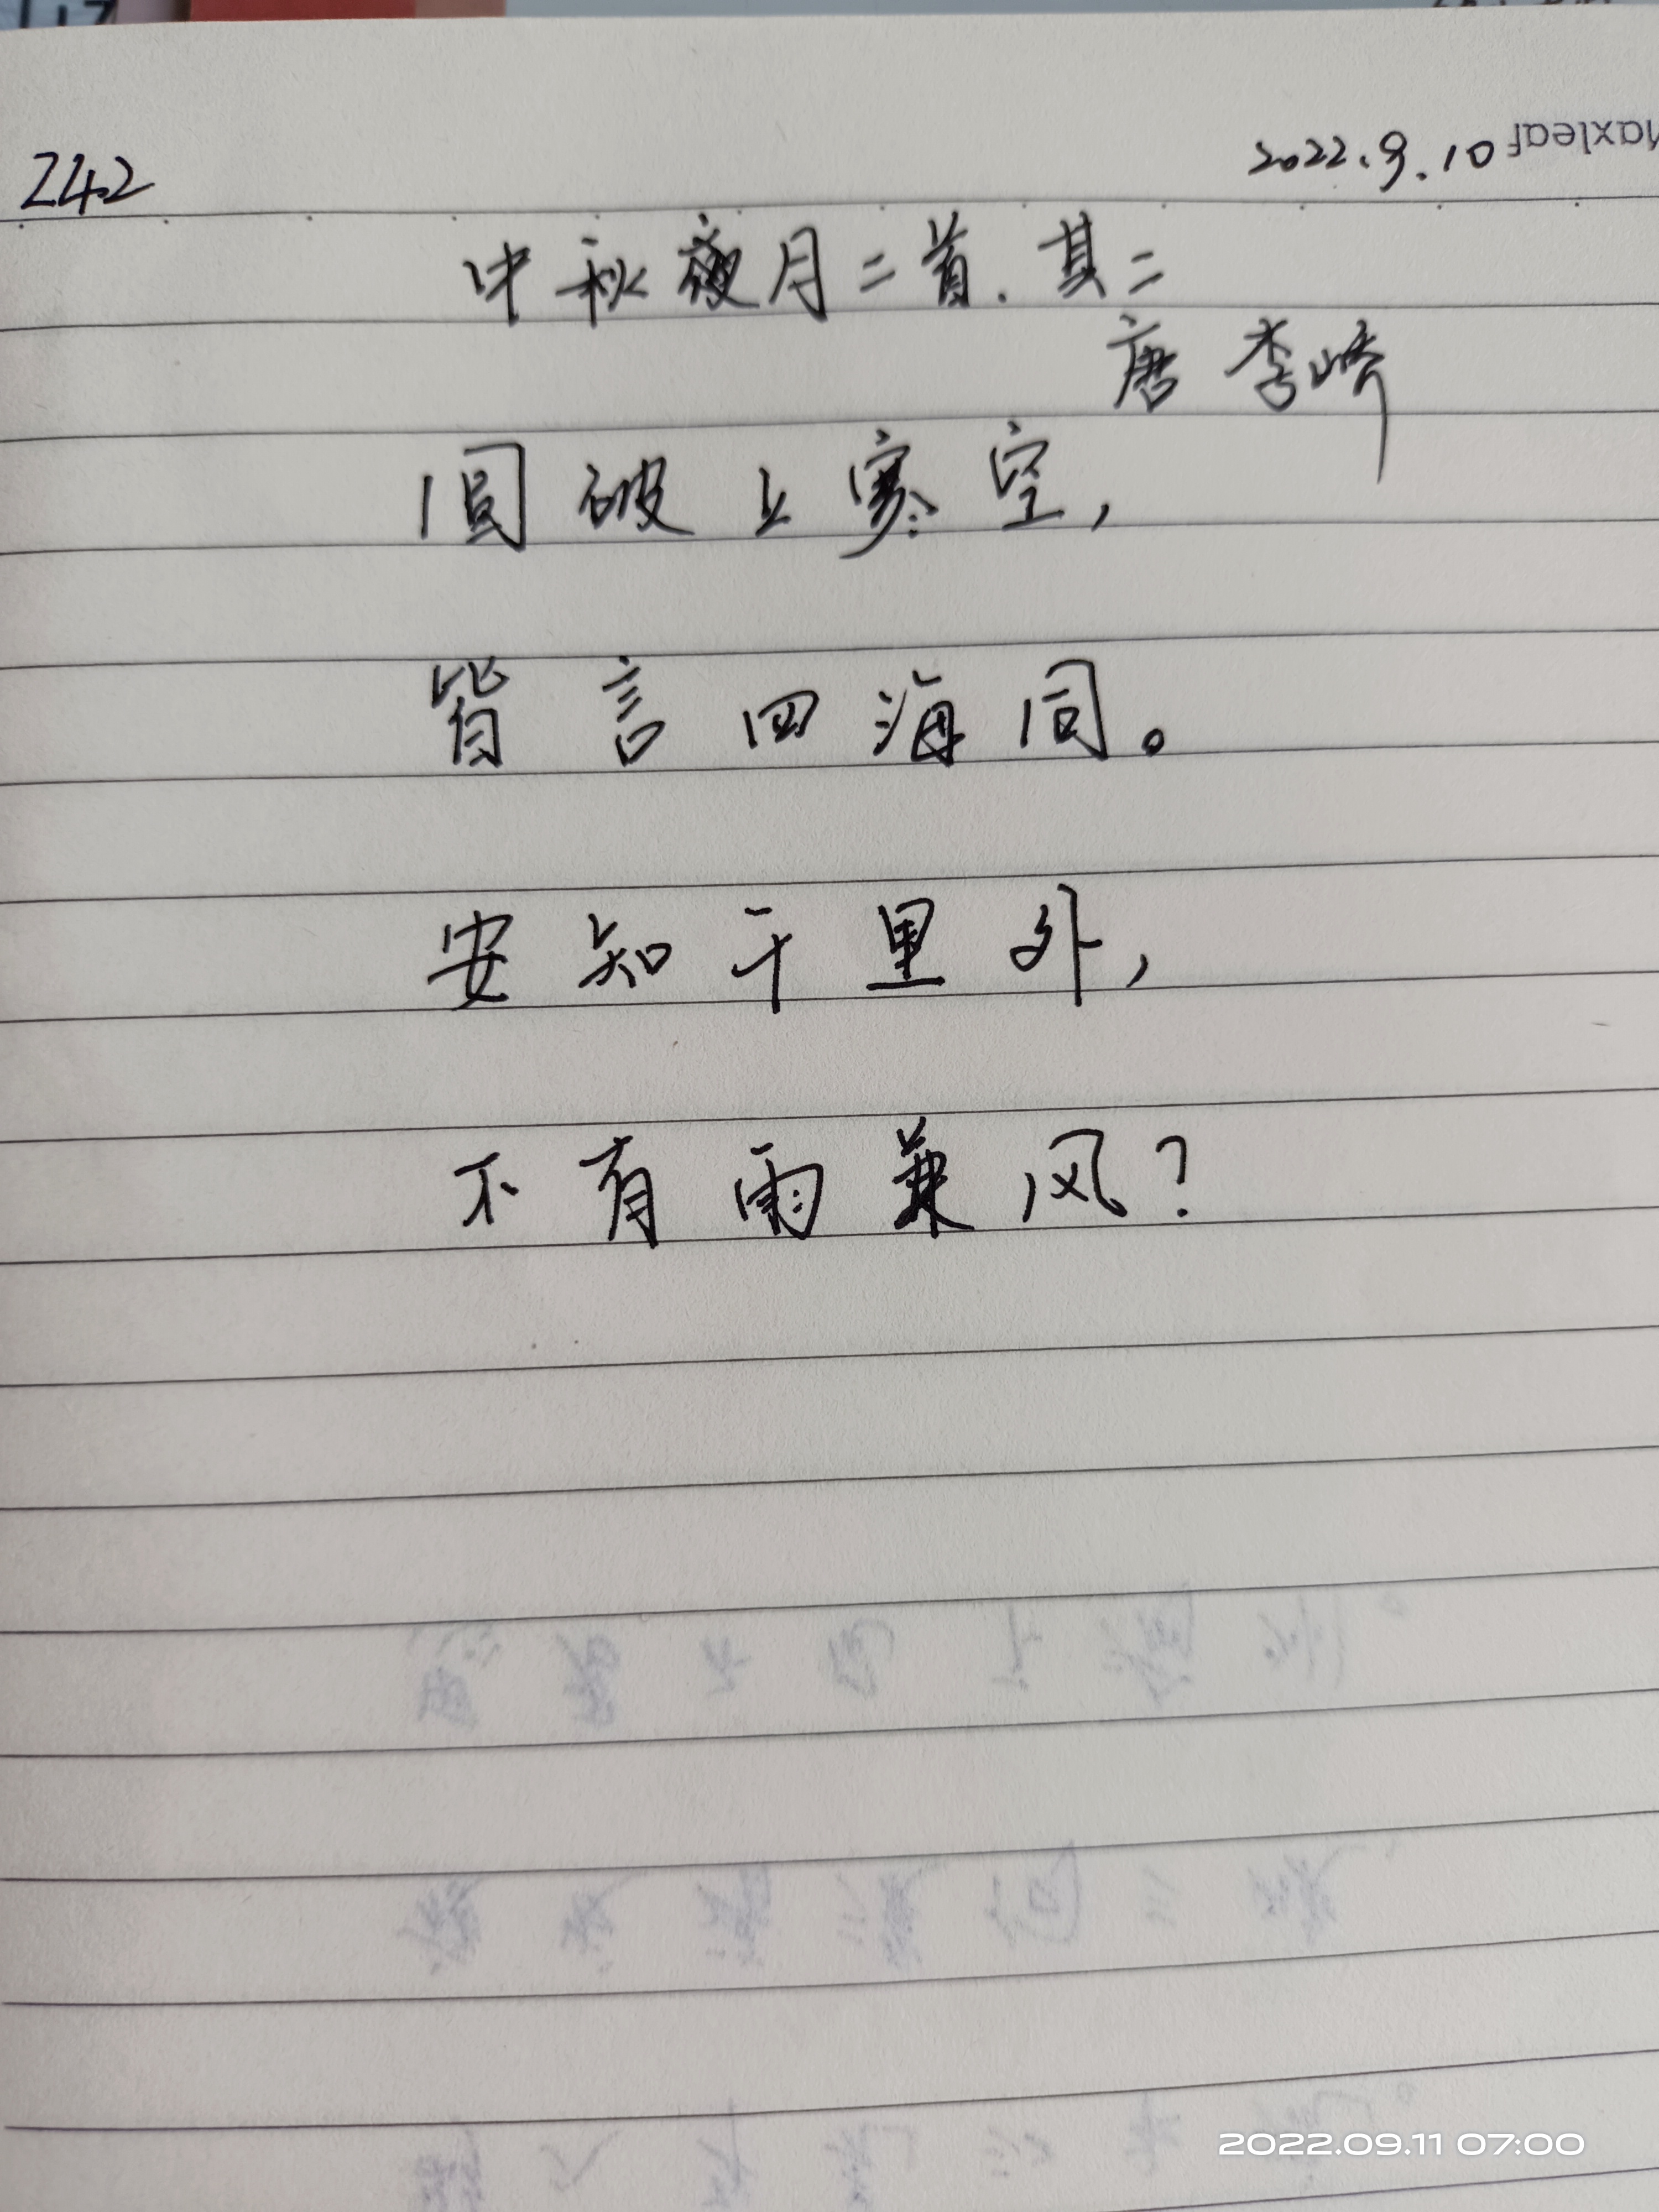 242
2022.9.10
Maxleaf
中秋夜月二首.其二
唐 李峤
圆破上寒空,
皆言四海同。
安知千里外,
不有雨兼风?
2022.09.11 07:00